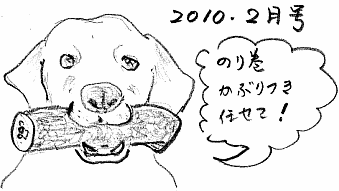 2010.2月号
のり巻
かぶりつき
任せて!